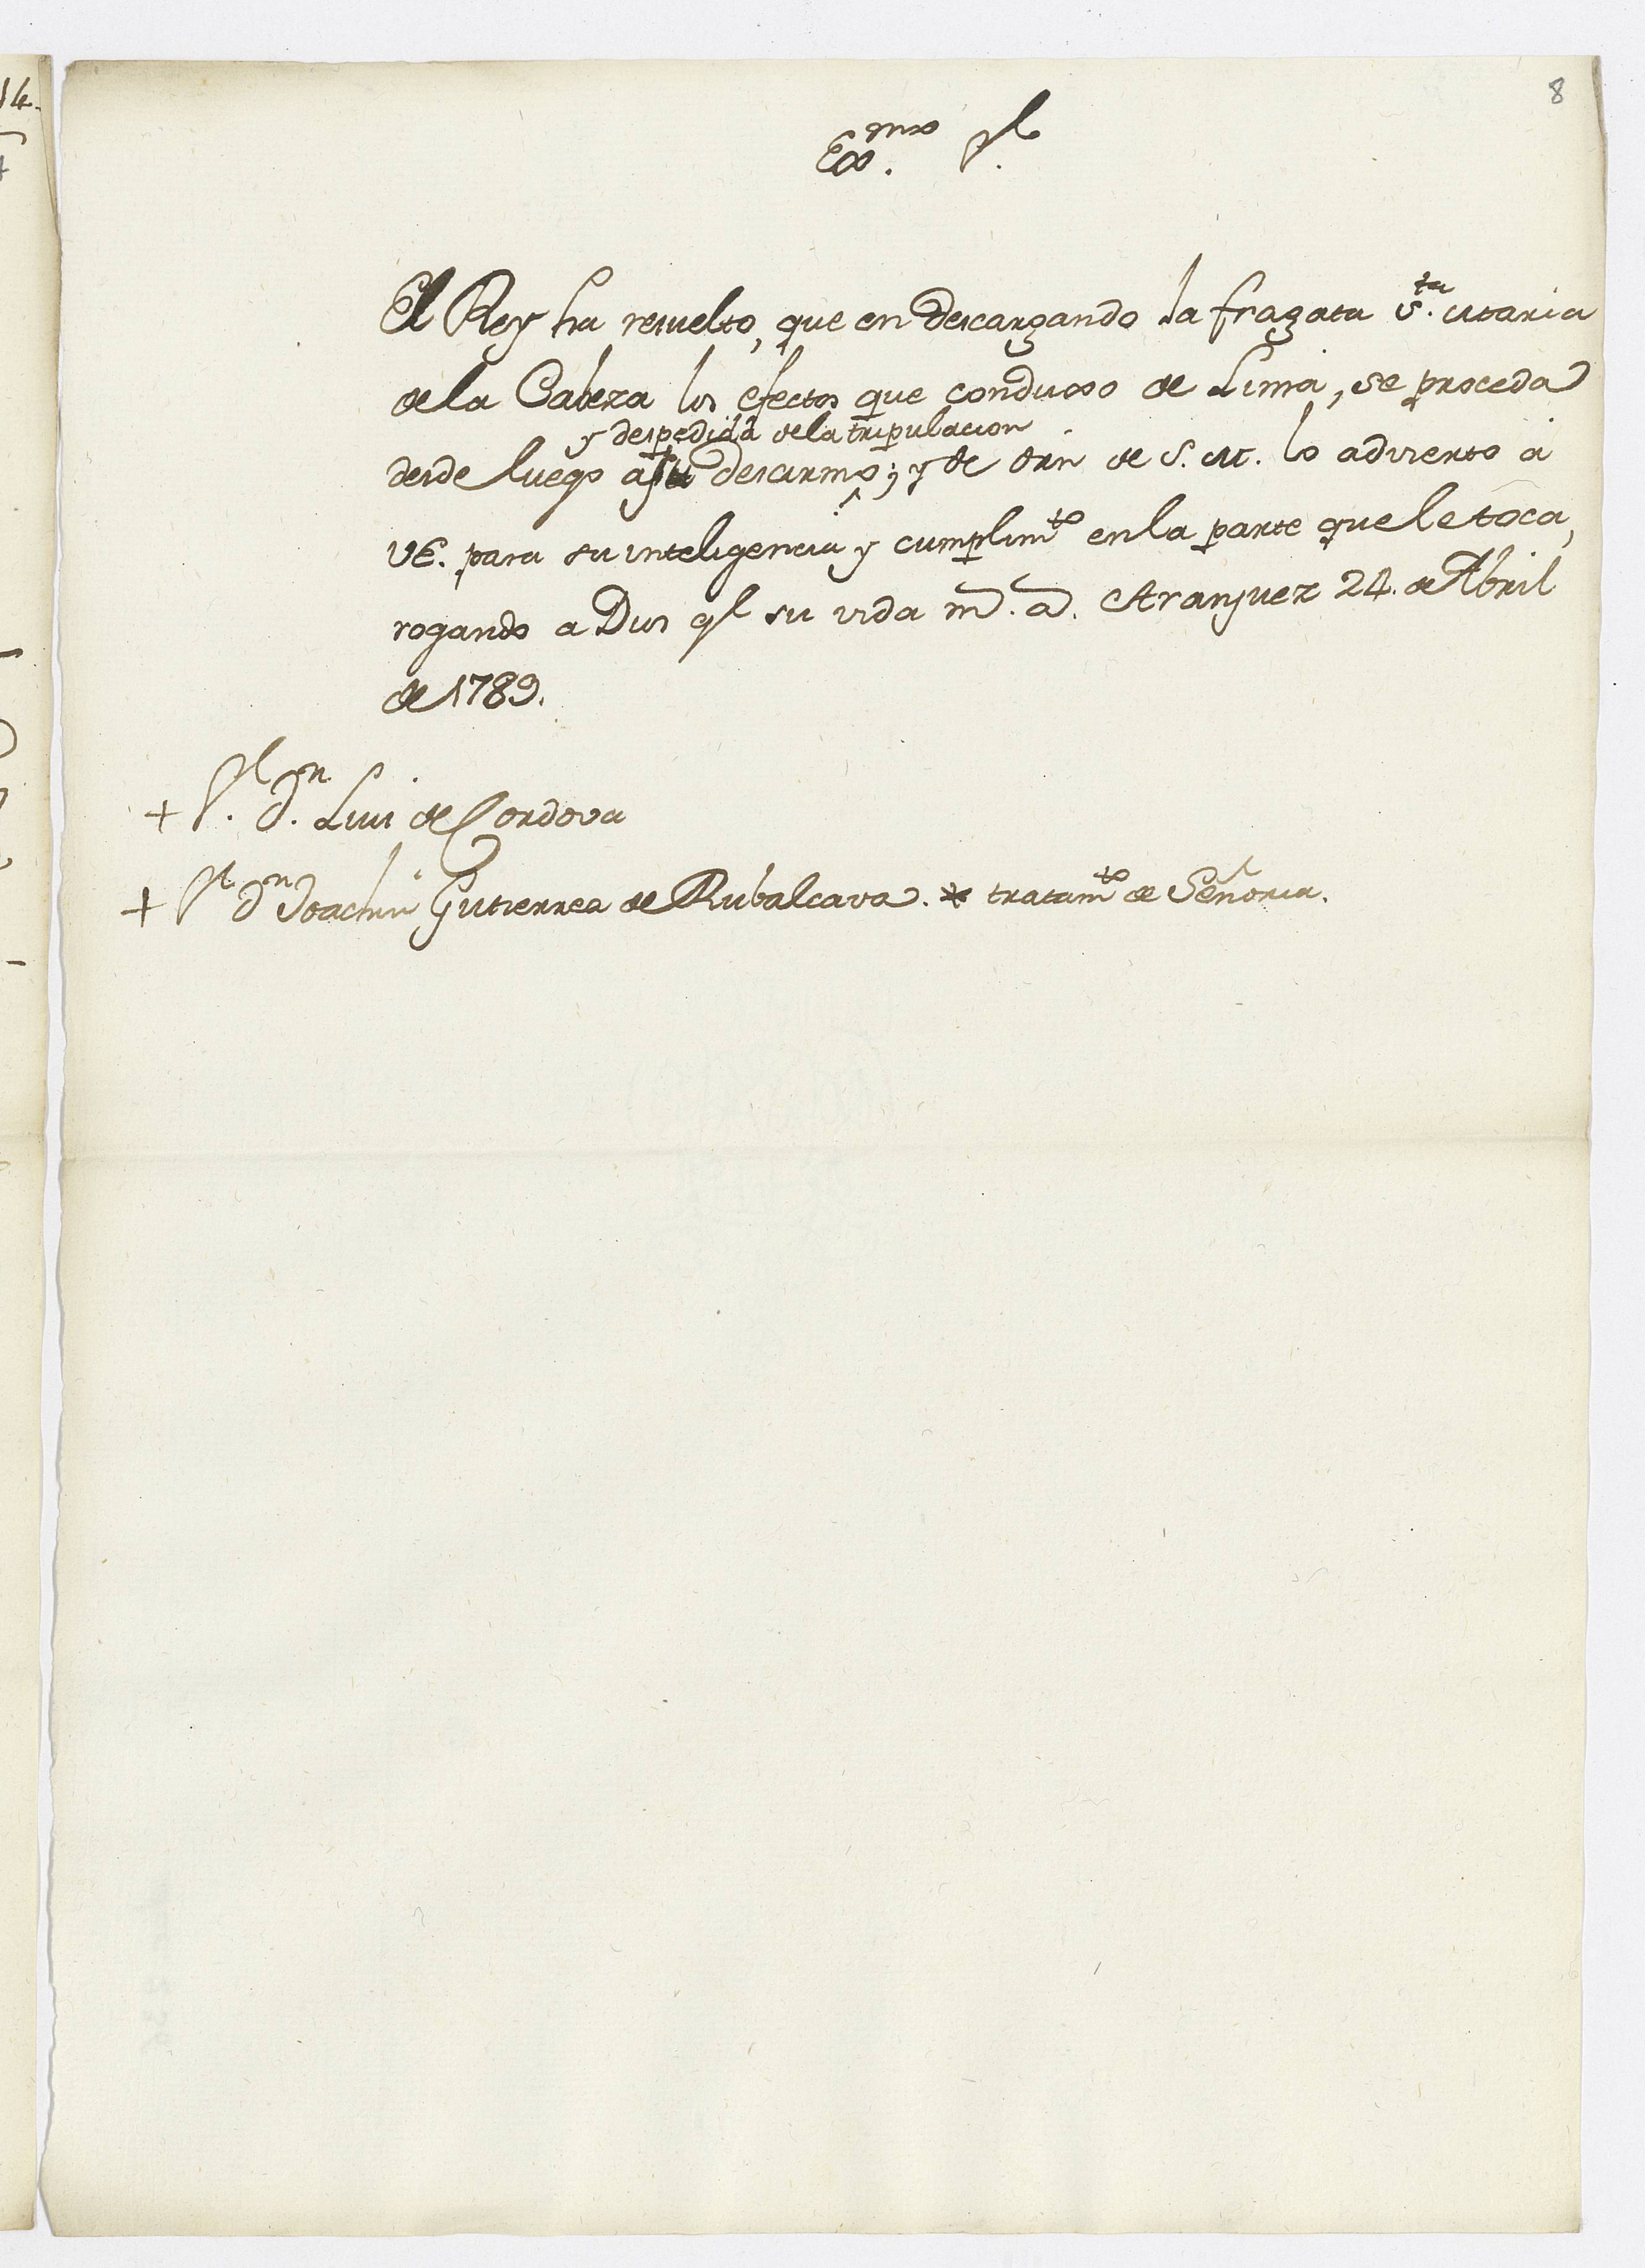 14.
8
Exmo. Sr.
El Rey ha resuelto, que en descargando la fragata Sta. Maria
de la Cabeza los efectos que conduxo de Lima, se proceda
y despedida de la tripulacion
desde luego a su desarmo; y de orn de S. M. lo advierto á
VE. para su inteligencia y cumplimto en la parte que le toca,
rogando a Dios gue su vida ms. as. Aranjuez 24. de Abril
de 1789.
+ Sr. Dn. Luis de Cordova
+ Sr Dn Joachin Gutierrez de Rubalcava. * tratamto de Señoria.